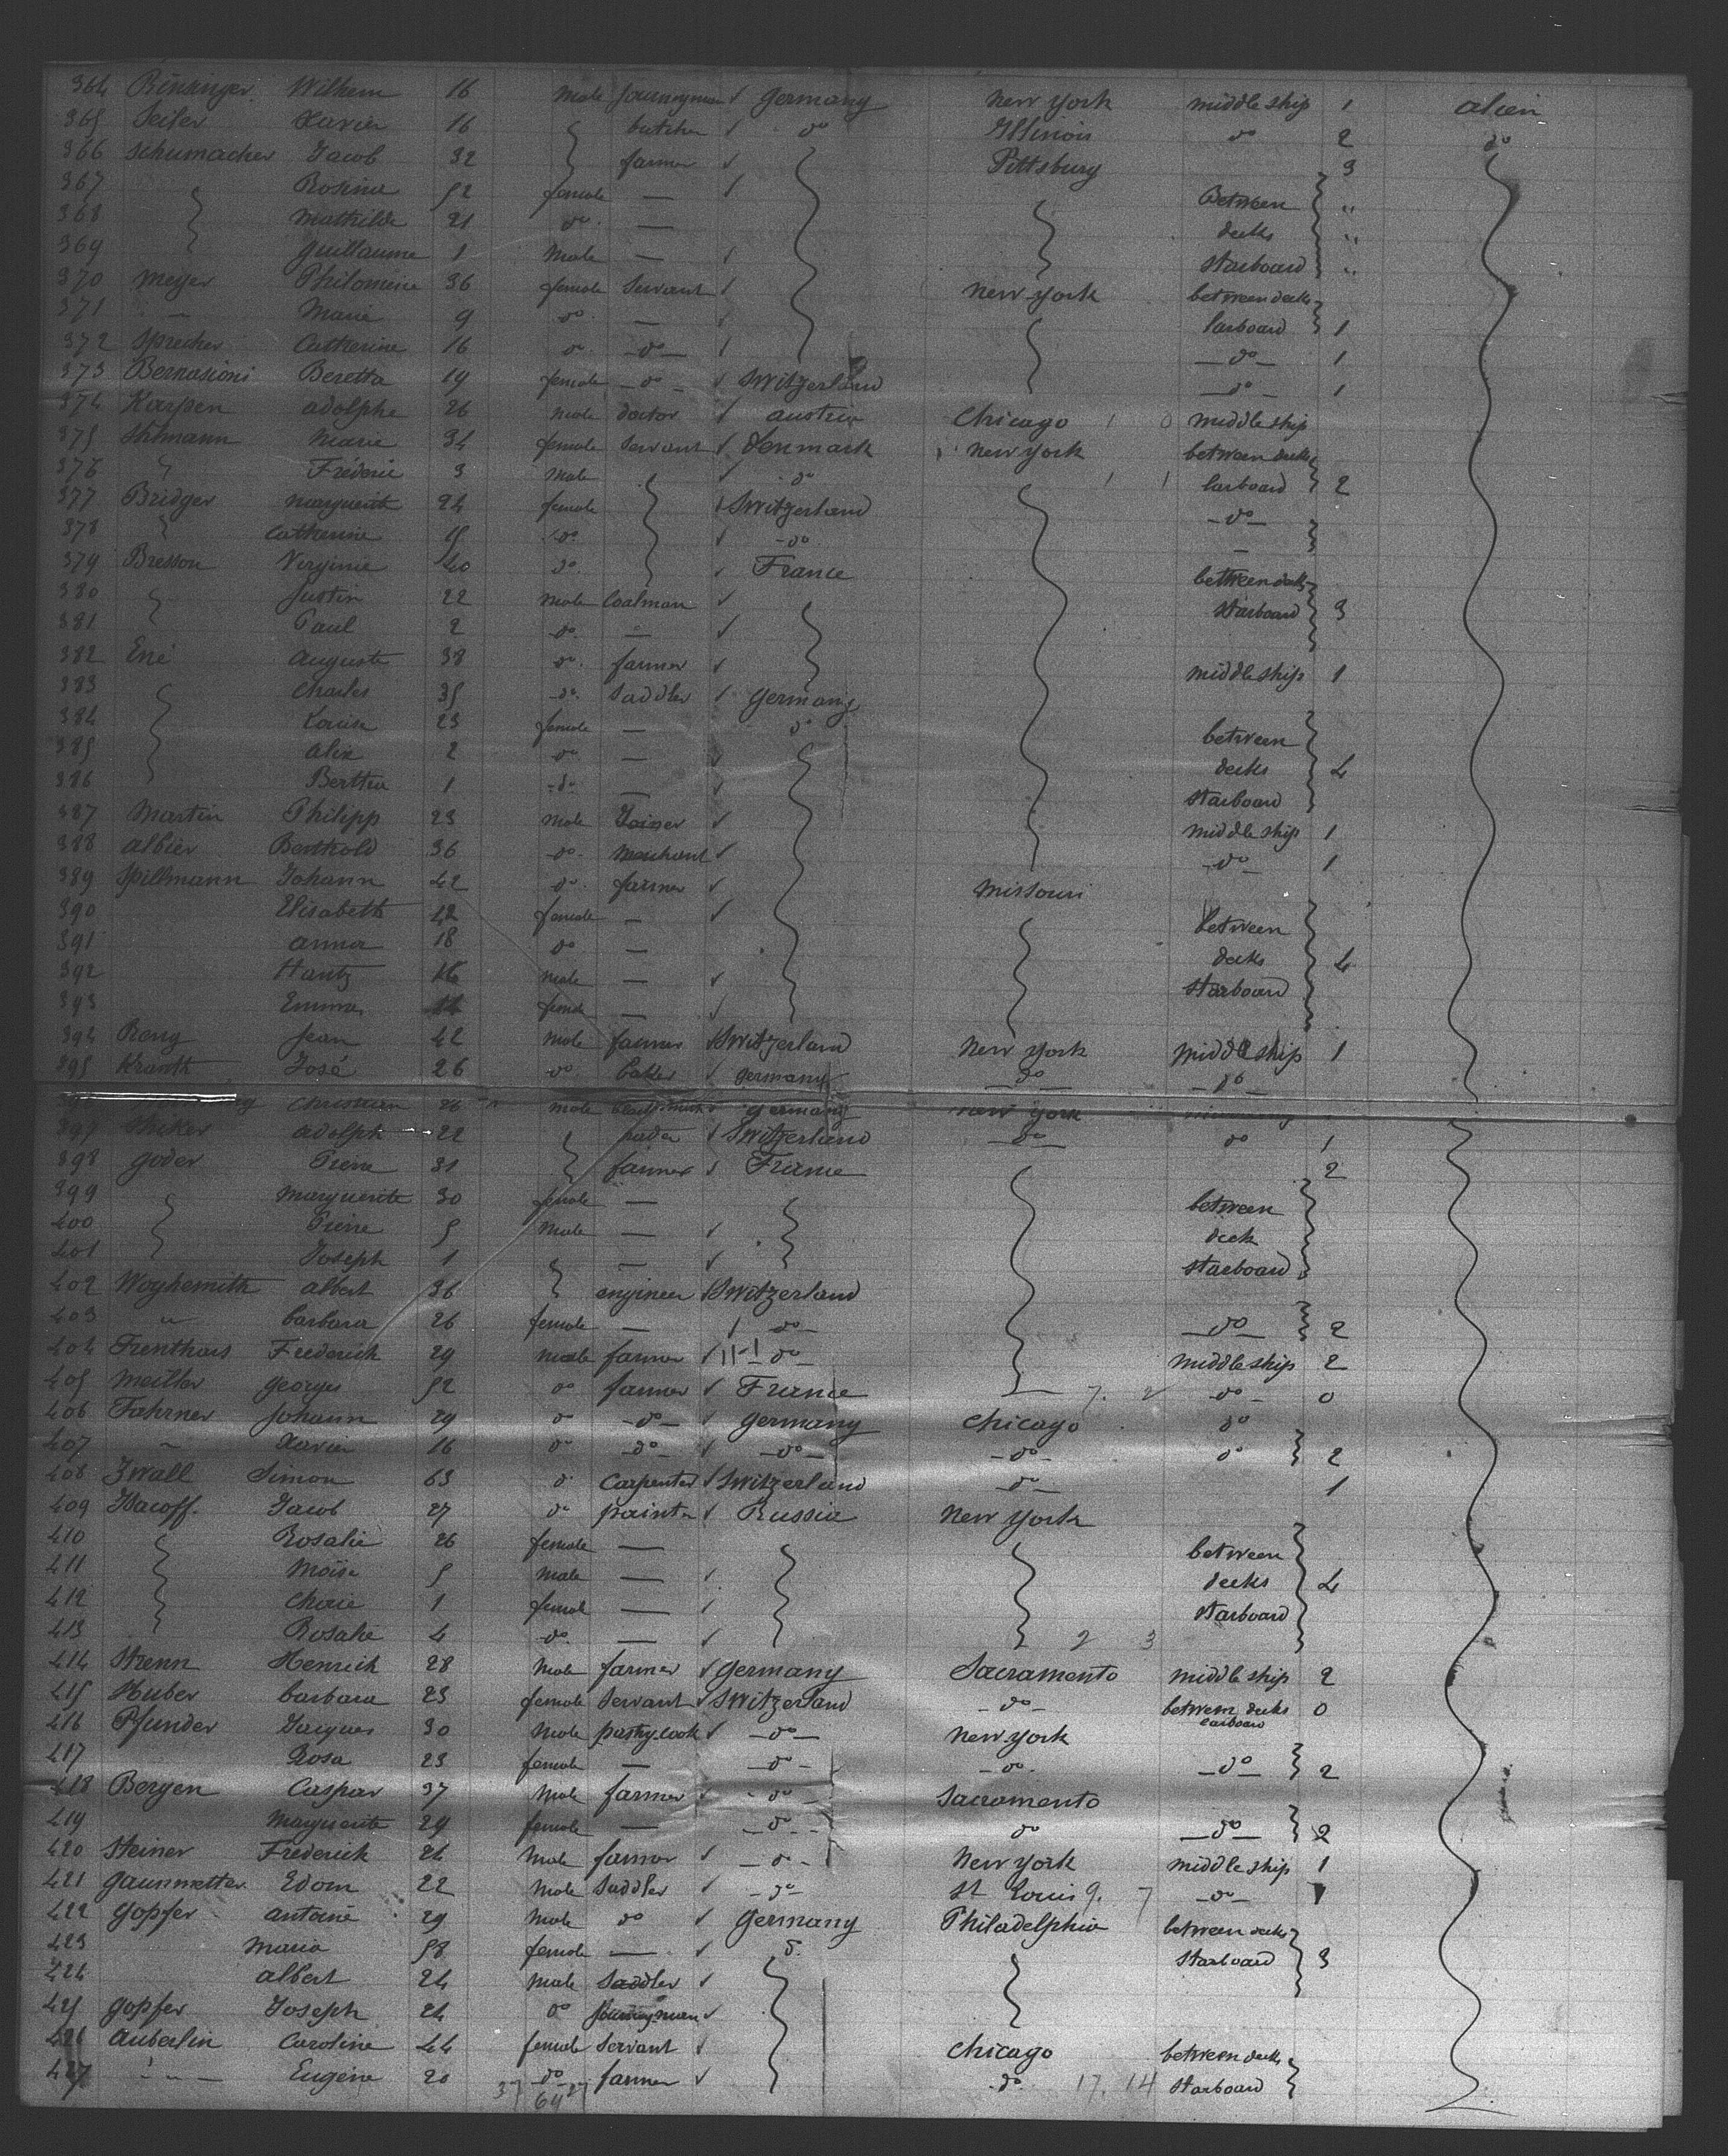 364 Wilhem 16 male journeyman ✓ germany new york middle ship 1 alien
365 Seiler Xavier 16 butcher ✓ do Illinois do 2 do
366 Schumacher Jacob 32 farmer ✓ Pittsburg 3
367 Rosine 52 female — ✓ Between "
368 Mathilde 21 do — decks "
369 guillaume 1 male — ✓ starboard "
370 meyer Philomène 36 female servant ✓ new york between decks
371 — Marie 9 do — ✓ larboard 1
372 Sprecher Catherine 16 do — do — ✓ — do — 1
373 Bernasioni Beretta 19 female — do — ✓ Switzerland — do — 1
374 Karpen adolphe 26 male doctor ✓ austria Chicago 1 0 middle ship
375 Marie 34 female servant ✓ Denmark new york between decks
376 Fréderic 3 male ✓ do 1 1 larboard 2
377 Bridger marguerite 24 female ✓ Switzerland — do —
378 catherine do ✓ — do
379 Bresson Virginie 40 do ✓ France between decks
380 Justin 22 male Coalman ✓ starboard 3
381 Paul 2 do — ✓
382 Ené auguste 38 do farmer ✓ middle ship 1
383 Charles 35 do saddler ✓ germany
384 Louise 23 female — do between
385 alix 2 do — ✓ decks 4
386 Bertha 1 do — ✓ starboard
387 Martin Philipp 23 male Joiner ✓ middle ship 1
388 albier Berthold 36 do merchant ✓ — do — 1
389 Spillmann Johann 42 do farmer ✓ Missouri
390 Elisabeth 42 female — ✓ between
391 anna 18 do — decks 4
392 Hantz 16 male — ✓ starboard
393 Emma female — ✓
394 Reny Jean 42 male farmer ✓ Switzerland new york middle ship 1
395 Kranth José 26 do baker ✓ germany — do — — do —
Christian 26 male ✓ germany new york
397 adolph 22 ✓ Switzerland — do — do 1
398 goder Pierre 31 farmer ✓ France 2
399 marguerite 30 female — between
400 Pierre 5 male — ✓ deck
401 Joseph 1 — ✓ starboard
402 Woghemith albert 36 engineer ✓ Switzerland
403 " barbara 26 female — ✓ do — — do — 2
404 Frederick 29 male farmer ✓ do — middle ship 2
405 Meitler georges 52 do farmer ✓ France 7. 2 do — 0
406 Fahrner Johann 29 do — do — ✓ germany chicago do
407 — Xavier 16 do — do — ✓ — do — — do — do 2
408 Zwall Simon 63 do carpenter ✓ Switzerland — do — 1
409 Isacoff. Jacob 27 do painter ✓ Russia new york
410 Rosalie 26 female — between
411 Moïse 5 male — ✓ decks 4
412 1 female — ✓ starboard
413 Rosalie 4 do — ✓ 2 3
414 Strenn Henrich 28 male farmer ✓ germany Sacramento middle ship 2
415 Huber barbara 23 female servant ✓ Switzerland — do — between decks larboard 0
416 Pfunder Jacques 30 male pastry.cook ✓ — do — new york
417 Rosa 23 female — — do — — do — — do — 2
418 Bergen Caspar 37 male farmer ✓ — do — Sacramento
419 Marguerite 29 female — — do — do — do — 2
420 Steiner Fréderick 26 male farmer ✓ — do — new york middle ship 1
421 Edom 22 male saddler ✓ — do — St Louis 9. 7 — do — 1
422 gopfer antoine 29 male do ✓ germany Philadelphia between decks
423 maria 58 female — ✓ do starboard 3
424 albert 24 male saddler ✓
425 gopfer Joseph 24 do journeyman ✓
426 auberlin Caroline 44 female servant ✓ chicago between decks
427 " — Eugène 20 do farmer ✓ do 17. 14 starboard
37 64 27